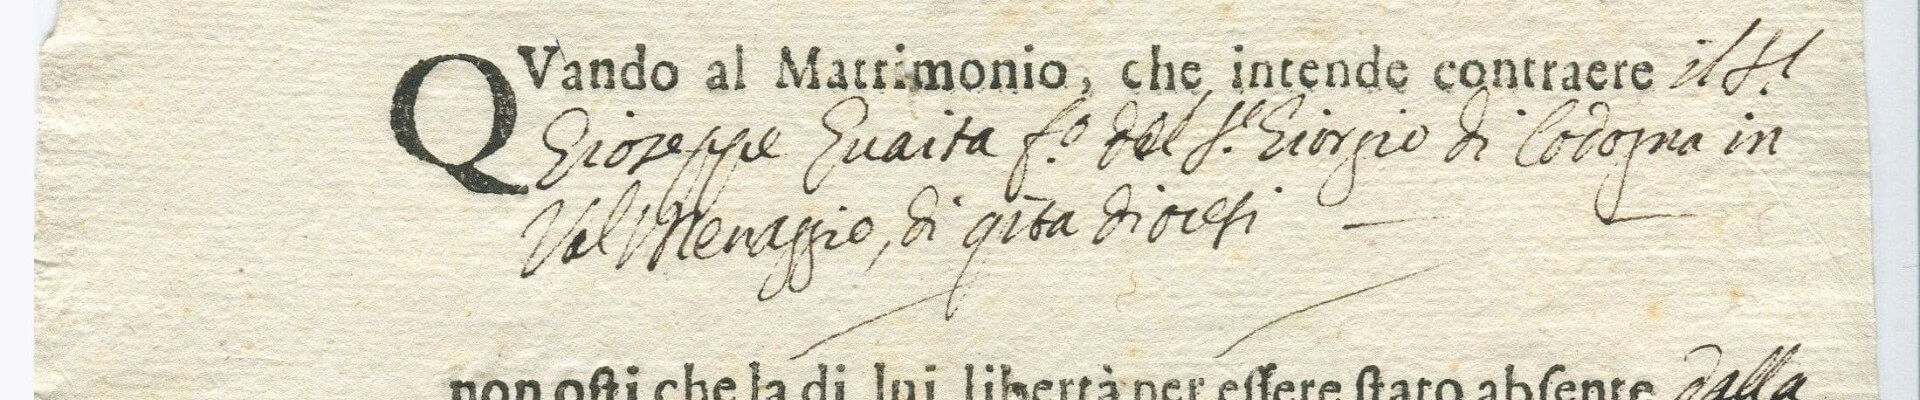 QVando al Matrimonio, che intende contraere il Sr.
Gioseppe Guaita f.o del S.r Giorgio di Codogna in
Val Menaggio, di q̃sta diocesi
non osti che la di lui libertà per essere stato absente dalla